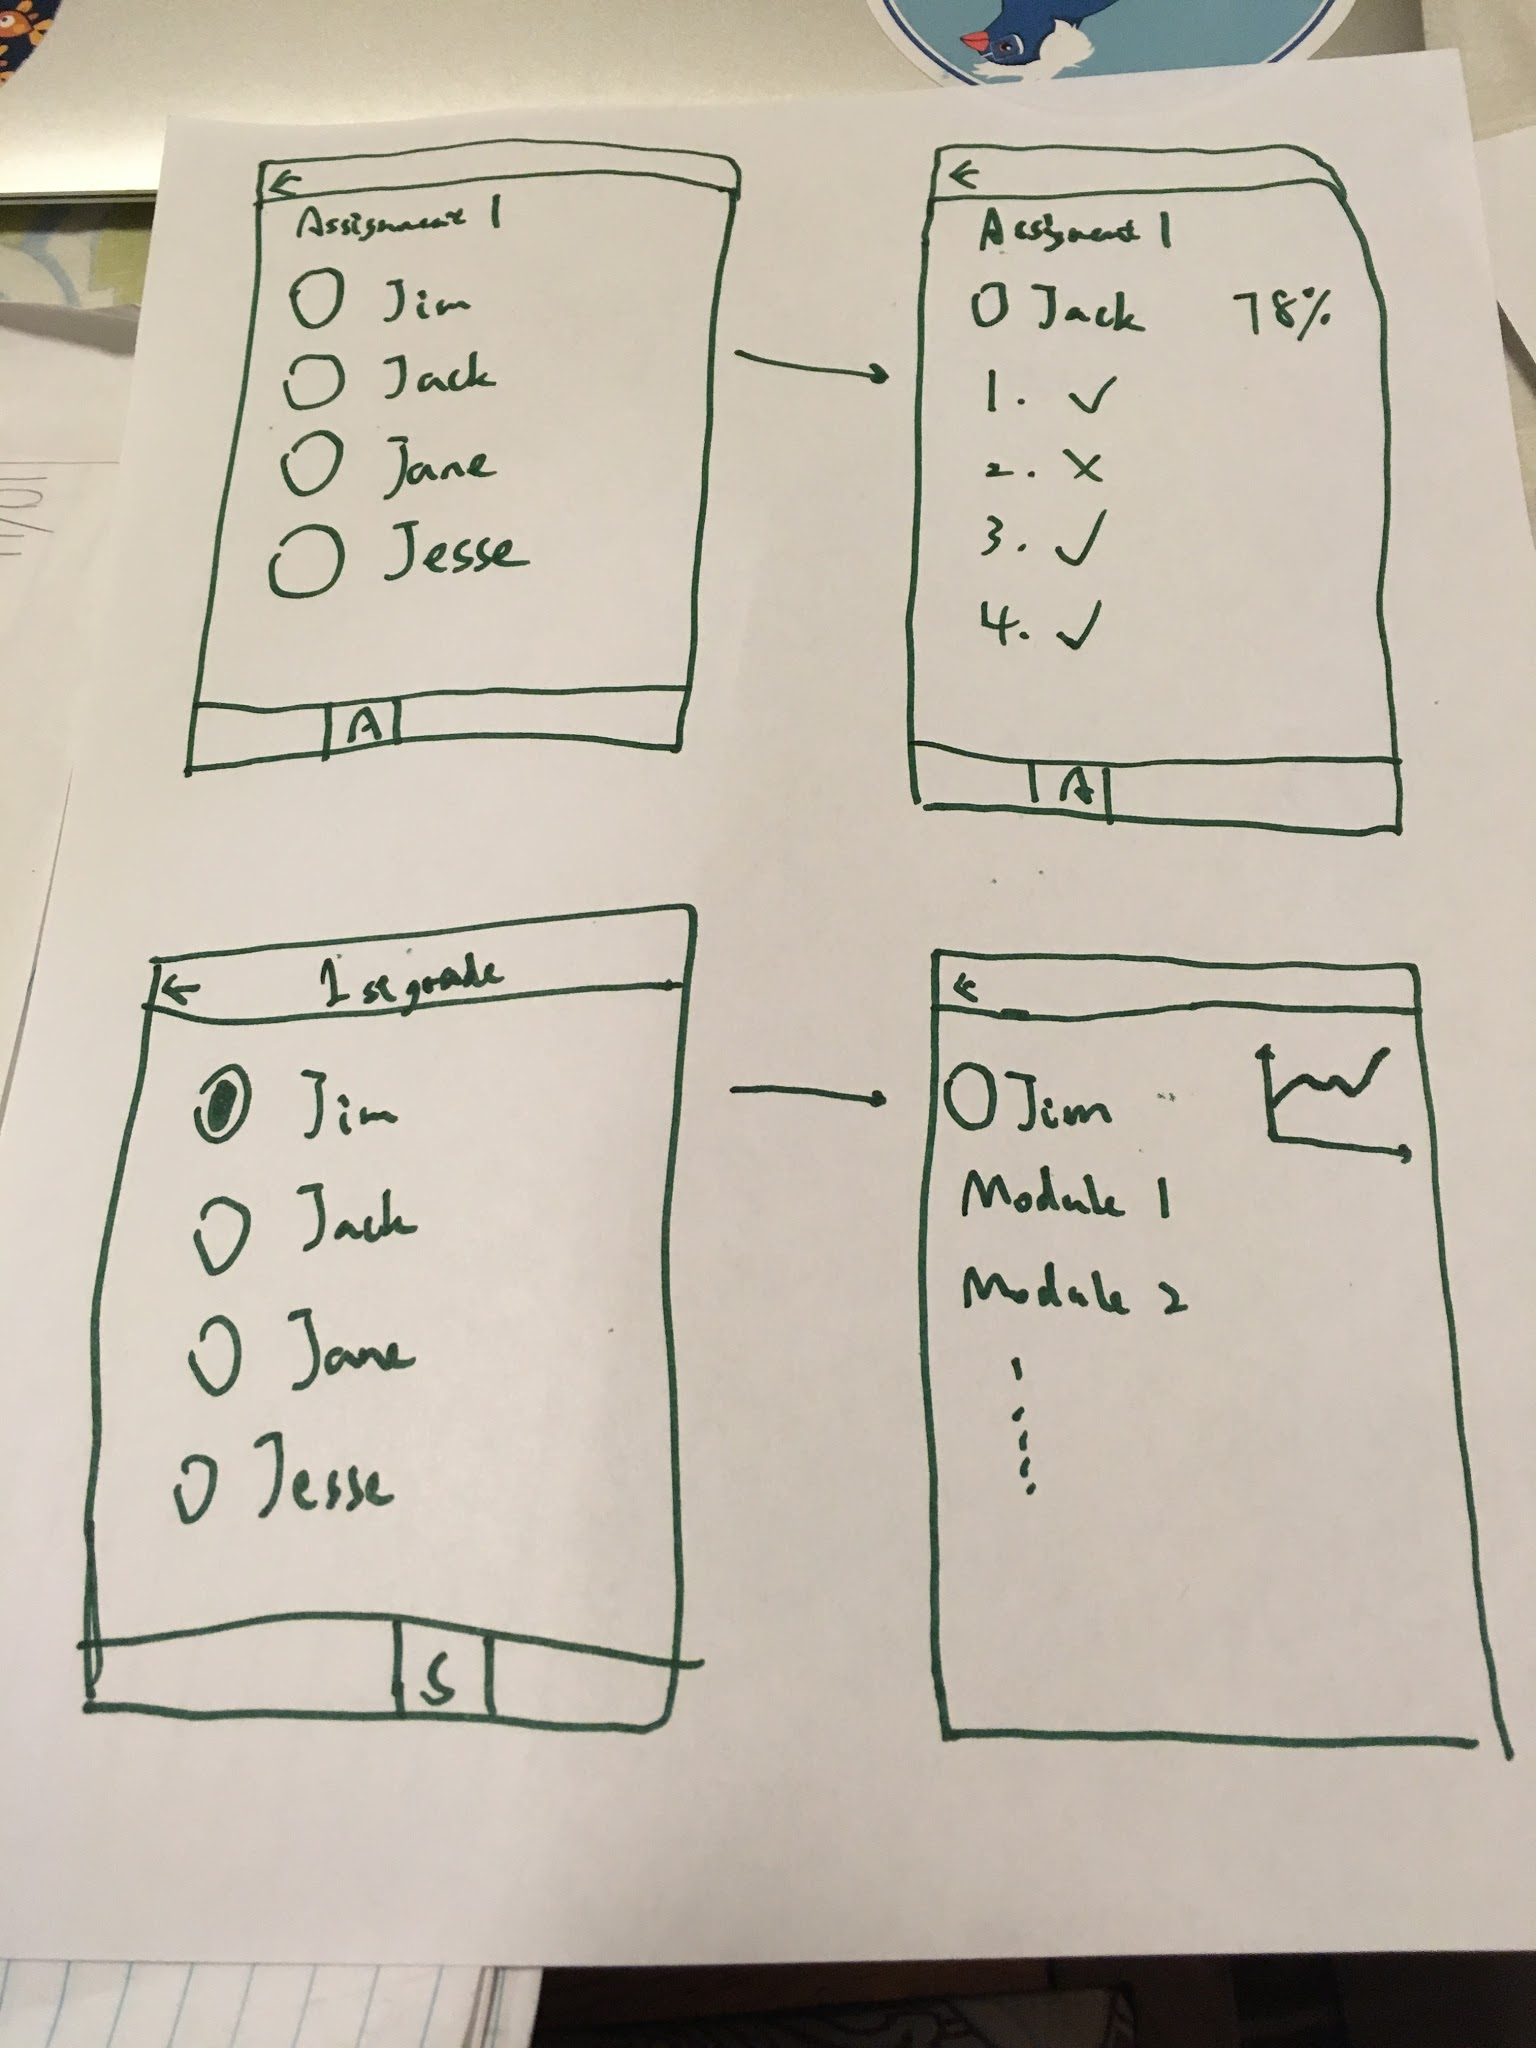 Assignment 1
Jim
Jack
Jane
Jesse
A
Assignment 1
Jack 78%
1. ✓
2. X
3. ✓
4. ✓
A
1st grade
Jim
Jack
Jane
Jesse
S
Jim
Module 1
Module 2